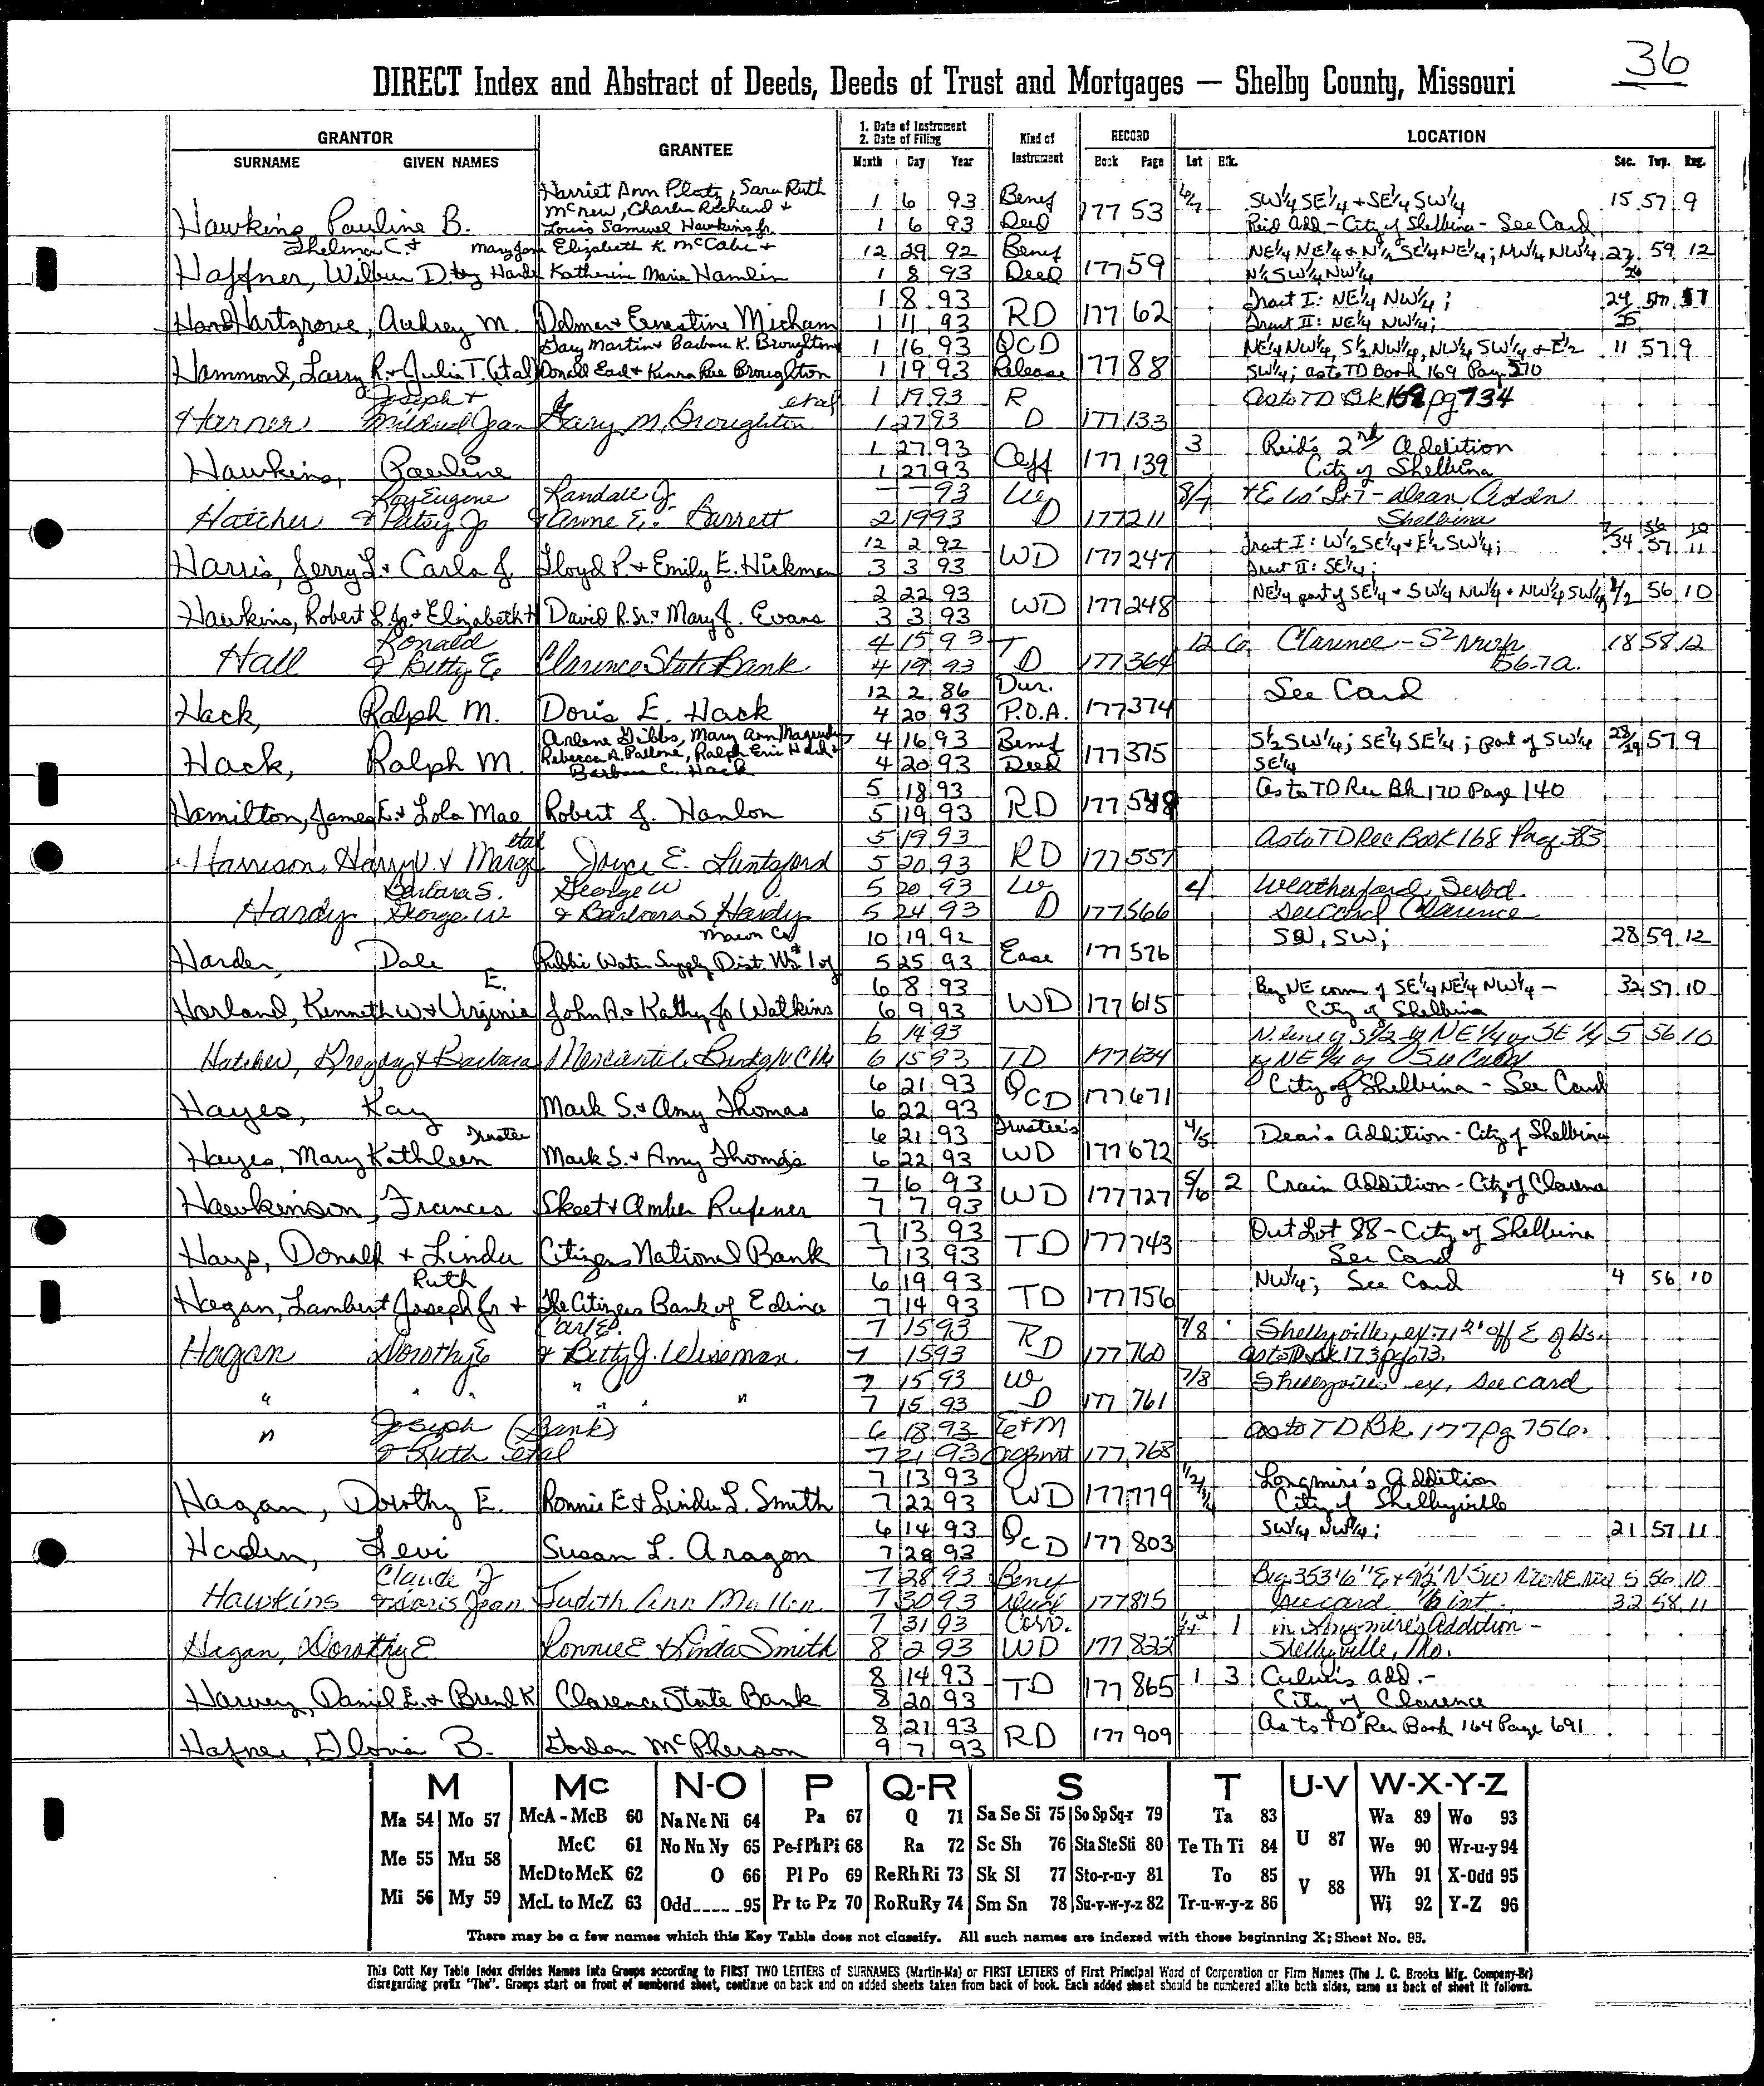 36
DIRECT Index and Abstract of Deeds, Deeds of Trust and Mortgages — Shelby County, Missouri
GRANTOR GRANTEE 1. Date of Instrument 2. Date of Filing Kind of Instrument RECORD LOCATION
SURNAME GIVEN NAMES Month Day Year Book Page Lot Blk. Sec. Twp. Rng.
Harriet Ann Plotz, Sara Ruth
McNew, Charles Richard + 1 6 93 Benef 6/7 SW¼ SE¼ + SE¼ SW¼ 15 57 9
Hawkins, Pauline B. Louis Samuel Hawkins Jr. 1 6 93 Deed 177 53 Reid Add - City of Shelbina - See Card
Thelma C. + Mary Jane Elizabeth K. McCabe + 12 29 92 Benef NE¼ NE¼ + N½ SE¼ NE¼; NW¼ NW¼ 27 59 12
Haffner, Wilbur D. by Hardy Katherine Marie Hamlin 1 8 93 Deed 177 59 N½ SW¼ NW¼ 26
1 8 93 Tract I: NE¼ NW¼; 24 57
Hartgrove, Aubrey M. Delmar + Ernestine Micham 1 11 93 RD 177 62 Tract II: NE¼ NW¼; 25
Gary Martin + Barbara K. Broughton 1 16 93 QCD NE¼ NW¼, S½ NW¼, NW¼ SW¼ + E½ 11 57 9
Hammond, Larry R. + Julia T. (etal) Donald Earl + Kinna Rae Broughton 1 19 93 Release 177 88 SW¼; as to TD Book 169 Page 270
Joseph + etal 1 19 93 R as to TD Bk 169 pg 734
Harner Mildred Jean Gary M. Broughton 1 27 93 D 177 133
1 27 93 3 Reid's 2nd Addition
Hawkins, Pauline 1 27 93 Aff 177 139 City of Shelbina
Roy Eugene Randall J. — 93 W 8/7 + E 60' Lt 7 - Dean Addn
Hatcher & Patsy Jo & Anne E. Barrett 2 19 93 D 177 211 Shelbina
12 2 92 Tract I: W½ SE¼ + E½ SW¼; 7 56 10
Harris, Jerry L. + Carla J. Lloyd P. + Emily E. Hickman 3 3 93 WD 177 247 Tract II: SE¼; 34 57 11
2 22 93 NE¼ part of SE¼ + SW¼ NW¼ + NW¼ SW¼ 1/2 56 10
Hawkins, Robert L. Jr. + Elizabeth H David R. Sr. + Mary J. Evans 3 3 93 WD 177 248
Ronald 4 15 93 T 12 6 Clarence - S² 18 58 12
Hall & Betty E. Clarence State Bank 4 19 93 D 177 364 56.7a.
12 2 86 Dur. See Card
Hack, Ralph M. Doris E. Hack 4 20 93 P.O.A. 177 374
Arlene Gibbs, Mary Ann
Rebecca A. Pallone, Ralph Eric Hack + 4 16 93 Benef S½ SW¼; SE¼ SE¼; part of SW¼ 28/29 57 9
Hack, Ralph M. Barbara C. Hack 4 20 93 Deed 177 375 SE¼
5 18 93 as to TD Rec Bk 170 Page 140
Hamilton, James E. + Lola Mae Robert J. Hanlon 5 19 93 RD 177 548
etal 5 19 93 As to TD Rec Book 168 Page 383
Harrison, Harry V + Marge Joyce E. Luntsford 5 20 93 RD 177 557
Barbara S. George W 5 20 93 W 4 Weatherford Subd.
Hardy George W & Barbara S Hardy 5 24 93 D 177 566 See Card Clarence
Macon Co 10 19 92 SW, SW; 28 59 12
Harden, Dale Public Water Supply Dist. No. 1 of 5 25 93 Ease 177 576
E. 6 8 93 Beg NE corner of SE¼ NE¼ NW¼ - 32 57 10
Harland, Kenneth W. + Virginia John A. + Kathy Jo Watkins 6 9 93 WD 177 615 City of Shelbina
6 14 93 N. line of S1/2 of NE 1/4 of SE 1/4 5 56 10
Hatcher, Gregory & Barbara Mercantile Bank of N C Mo 6 15 93 TD 177 634 of NE 1/4 of See Card
6 21 93 City of Shelbina - See Card
Hayes, Kay Mark S. + Amy Thomas 6 22 93 QCD 177 671
Trustee 6 21 93 Trustee's 4/5 Dean's Addition - City of Shelbina
Hayes, Mary Kathleen Mark S. + Amy Thomas 6 22 93 WD 177 672
7 6 93 5/6 2 Crain Addition - City of Clarence
Hawkinson, Frances Skeet + Amber Rufener 7 7 93 WD 177 727
7 13 93 Out Lot 88 - City of Shelbina
Hays, Donald + Linda Citizens National Bank 7 13 93 TD 177 743 See Card
Ruth 6 19 93 NW¼; See Card 4 56 10
Hagan, Lambert Joseph Jr + The Citizens Bank of Edina 7 14 93 TD 177 756
Carl E. 7 15 93 R 7/8 Shelbyville, ex. 71 2' off E of lts.
Hagan Dorothy E & Betty J. Wiseman 7 15 93 D 177 760 as to TD Bk 173 pg 673.
7 15 93 W 7/8 Shelbyville ex, see card
" " " " " " 7 15 93 D 177 761
Joseph (Bank) 6 18 93 E+M as to TD Bk. 177 pg 756.
" & Ruth etal 7 21 93 Agrmt 177 768
7 13 93 1/2/3/4 Longmire's Addition
Hagan, Dorothy E. Ronnie E + Linda L. Smith 7 22 93 WD 177 779 City of Shelbyville
6 14 93 SW¼ NW¼; 21 57 11
Harden, Levi Susan L. Aragon 7 28 93 QCD 177 803
Claude J 7 28 93 Benef Beg 353'6" E + 5 56 10
Hawkins & Doris Jean Judith Ann Mullin 7 30 93 Deed 177 815 See card int. 32 58 11
7 31 93 Corr. 1 in Longmire's Addition -
Hagan, Dorothy E Ronnie E & Linda Smith 8 2 93 WD 177 822 Shelbyville, Mo.
8 14 93 1 3 Culver's add. -
Harvey, Daniel E. + Brend K Clarence State Bank 8 20 93 TD 177 865 City of Clarence
8 21 93 As to TD Rec Book 164 Page 691
Hafner, Gloria B. Gordon McPherson 9 7 93 RD 177 909
M Mc N-O P Q-R S T U-V W-X-Y-Z
Ma 54 Mo 57 McA - McB 60 Na Ne Ni 64 Pa 67 Q 71 Sa Se Si 75 So Sp Sq-r 79 Ta 83 U 87 Wa 89 Wo 93
Me 55 Mu 58 McC 61 No Nu Ny 65 Pe-f Ph Pi 68 Ra 72 Sc Sh 76 Sta Ste Sti 80 Te Th Ti 84 We 90 Wr-u-y 94
McD to McK 62 O 66 Pl Po 69 Re Rh Ri 73 Sk Sl 77 Sto-r-u-y 81 To 85 V 88 Wh 91 X-Odd 95
Mi 56 My 59 McL to McZ 63 Odd 95 Pr to Pz 70 Ro Ru Ry 74 Sm Sn 78 Su-v-w-y-z 82 Tr-u-w-y-z 86 Wi 92 Y-Z 96
There may be a few names which this Key Table does not classify. All such names are indexed with those beginning X; Sheet No. 95.
This Cott Key Table Index divides Names into Groups according to FIRST TWO LETTERS of SURNAMES (Martin-Ma) or FIRST LETTERS of First Principal Word of Corporation or Firm Names (The J. C. Brooks Mfg. Company-Br)
disregarding prefix "The". Groups start on front of numbered sheet, continue on back and on added sheets taken from back of book. Each added sheet should be numbered alike both sides, same as back of sheet it follows.